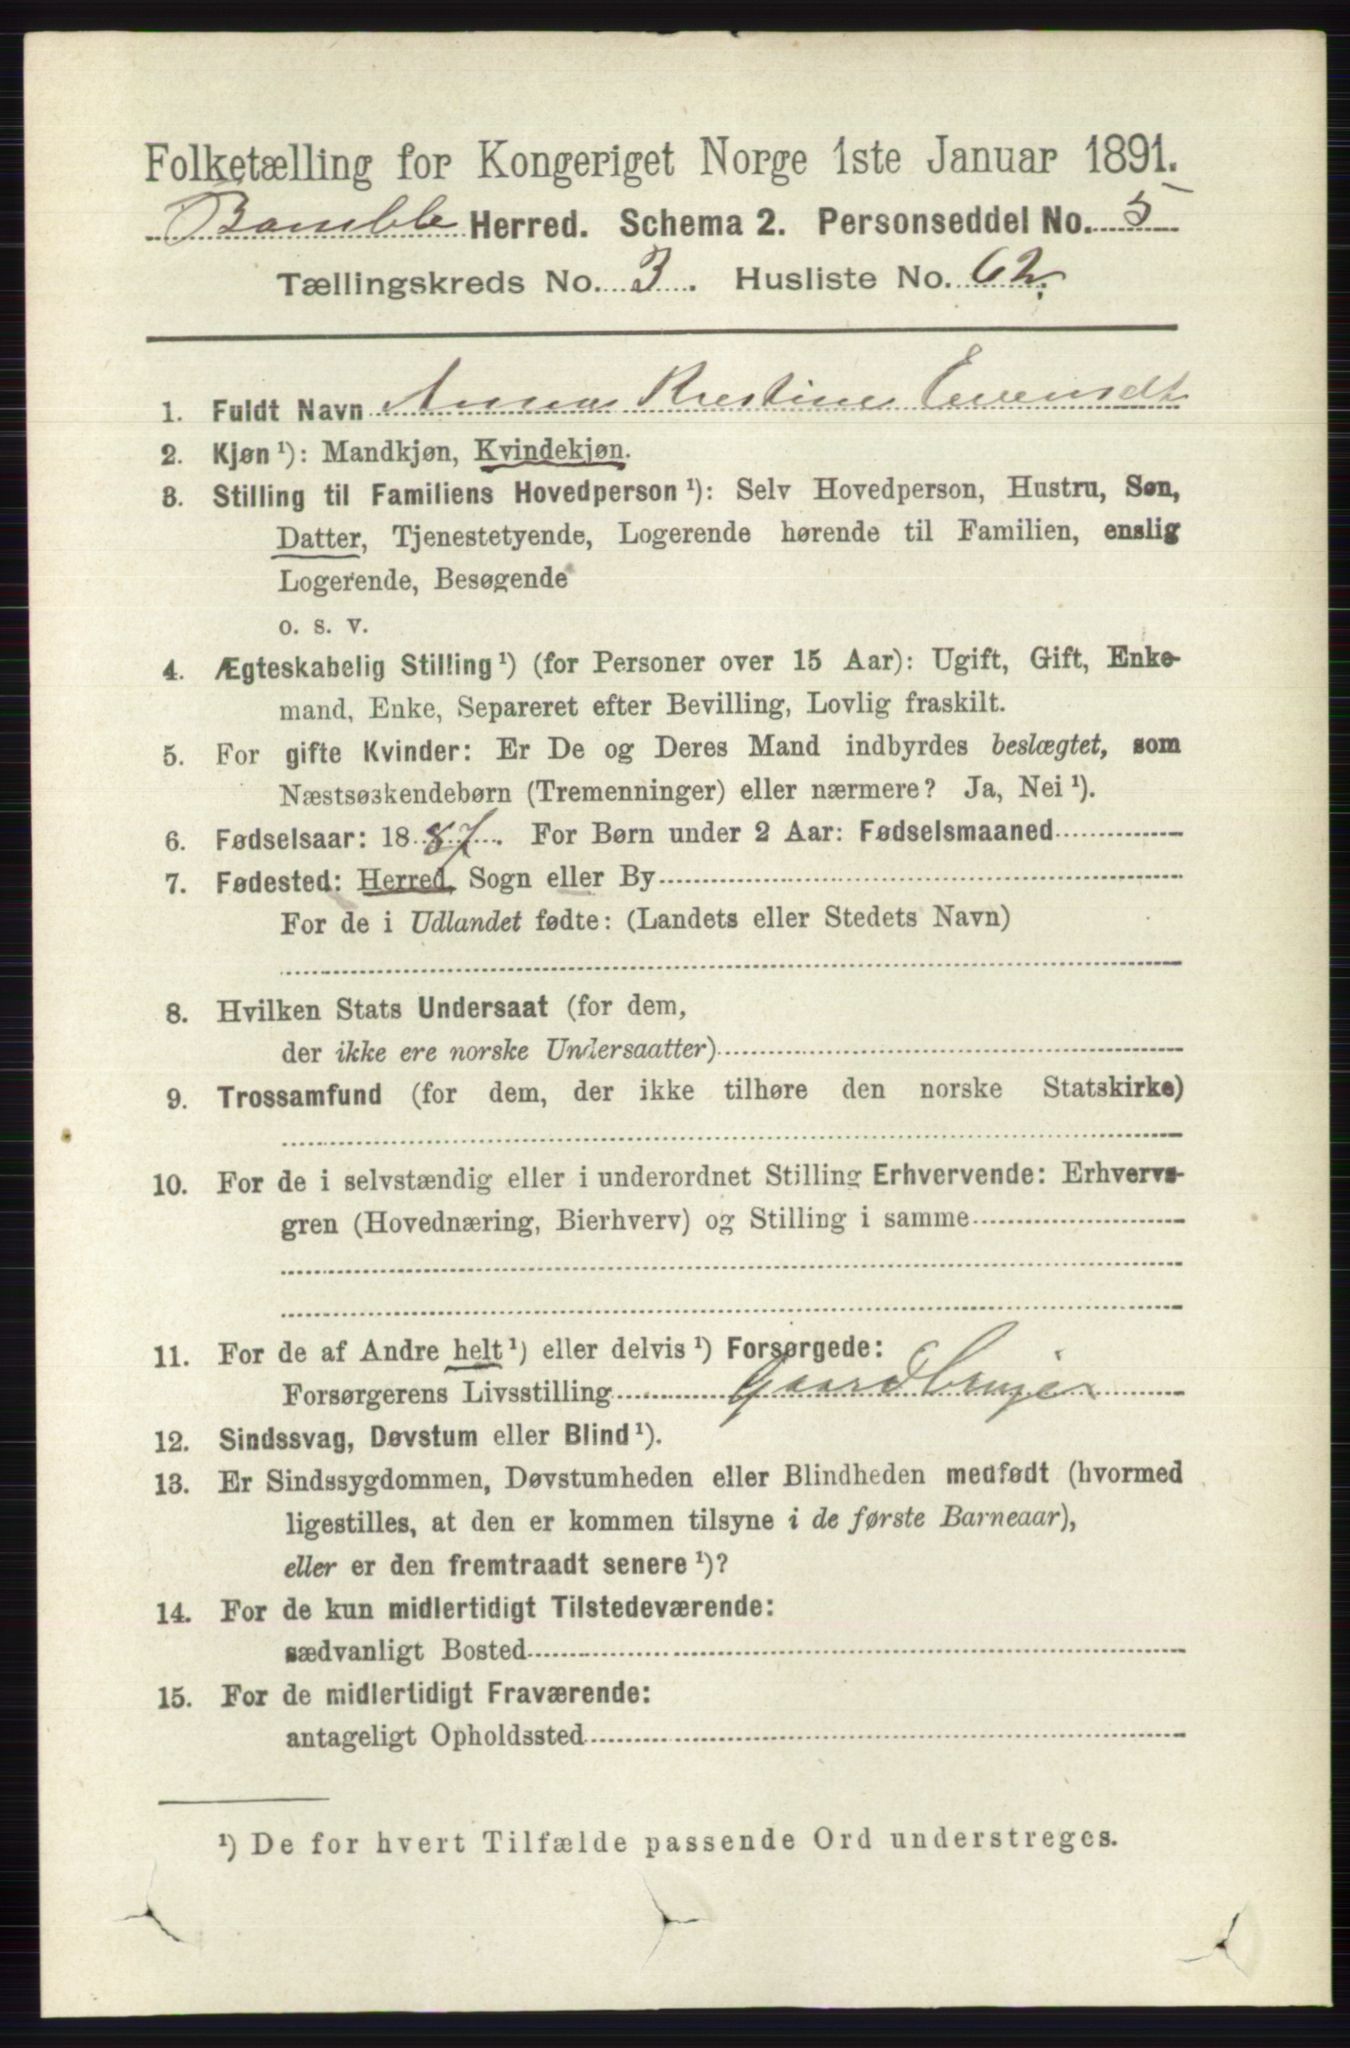 Folketælling for Kongeriget Norge 1ste Januar 1891.
Bamble Herred. Schema 2. Personseddel No. 5
Tællingskreds No. 3. Husliste No. 62.
1. Fuldt Navn Anna Kristine
2. Kjøn ¹): Mandkjøn, Kvindekjøn.
3. Stilling til Familiens Hovedperson ¹): Selv Hovedperson, Hustru, Søn,
Datter, Tjenestetyende, Logerende hørende til Familien, enslig
Logerende, Besøgende
o. s. v.
4. Ægteskabelig Stilling ¹) (for Personer over 15 Aar): Ugift, Gift, Enke-
mand, Enke, Separeret efter Bevilling, Lovlig fraskilt.
5. For gifte Kvinder: Er De og Deres Mand indbyrdes beslægtet, som
Næstsøskendebørn (Tremenninger) eller nærmere? Ja, Nei ¹).
6. Fødselsaar: 1887. For Børn under 2 Aar: Fødselsmaaned
7. Fødested: Herred, Sogn eller By
For de i Udlandet fødte: (Landets eller Stedets Navn)
8. Hvilken Stats Undersaat (for dem,
der ikke ere norske Undersaatter)
9. Trossamfund (for dem, der ikke tilhøre den norske Statskirke)
10. For de i selvstændig eller i underordnet Stilling Erhvervende: Erhvervs-
gren (Hovednæring, Bierhverv) og Stilling i samme
11. For de af Andre helt ¹) eller delvis ¹) Forsørgede:
Forsørgerens Livsstilling Gaardbruger
12. Sindssvag, Døvstum eller Blind ¹).
13. Er Sindssygdommen, Døvstumheden eller Blindheden medfødt (hvormed
ligestilles, at den er kommen tilsyne i de første Barneaar),
eller er den fremtraadt senere ¹)?
14. For de kun midlertidigt Tilstedeværende:
sædvanligt Bosted
15. For de midlertidigt Fraværende:
antageligt Opholdssted
¹) De for hvert Tilfælde passende Ord understreges.